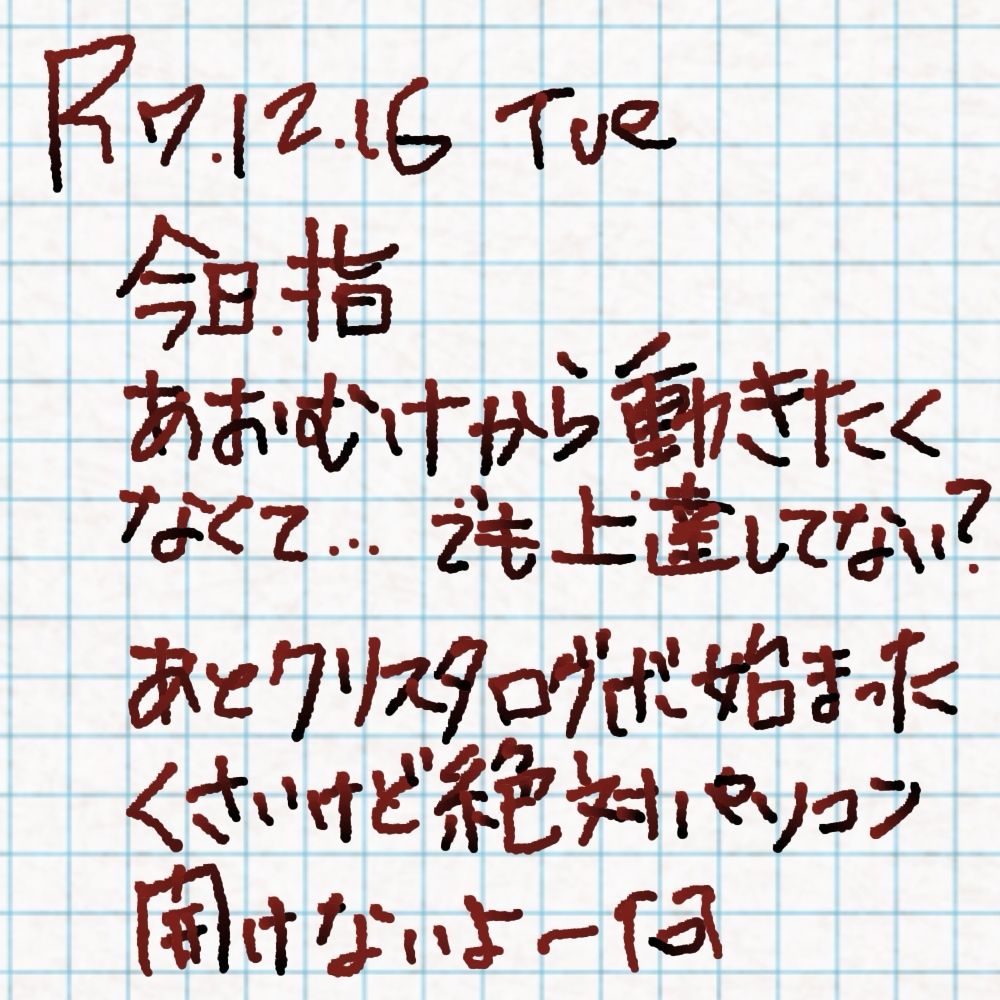 R7.12.16 Tue
今日.指
あおむけから動きたく
なくて... でも上達してない?
あとクリスタログボ始まった
くさいけど絶対パソコン
開けないよー